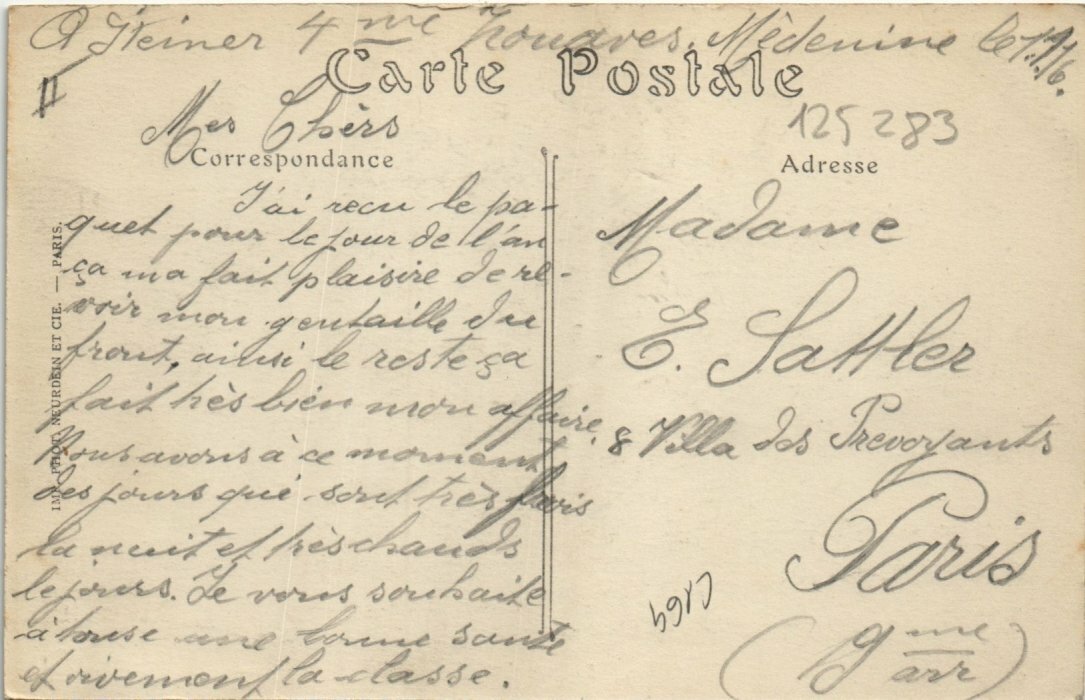 A Steiner 4me Zouaves, Médenine le 1.1.16.
II
Carte Postale
125283
Mes Chèrs
Correspondance
J'ai recu le pa-
quet pour le jour de l'an
ça ma fait plaisire de re-
voir mon gentaille du
front, ainsi le reste ça
fait très bien mon affaire.
Nous avons à ce moment
des jours qui sont très frais
la nuit et très chauds
le jours. Je vous souhaite
à touse une bonne santé
et vivement la classe.
IMP. PHOT. NEURDEIN ET CIE. — PARIS.
Adresse
Madame
E. Sattler
8 Villa des Prevoyants
Paris
(9me arr)